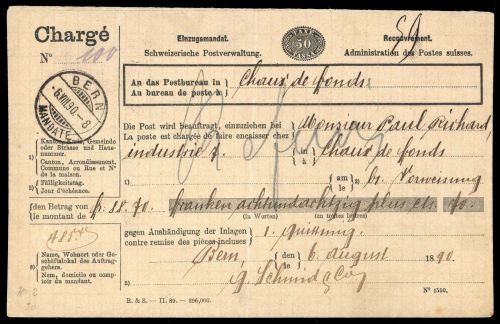 Chargé
No 100
Einzugsmandat.
Schweizerische Postverwaltung.
TAXE
50
Recouvrement.
Administration des Postes suisses.
An das Postbureau in
Au bureau de poste à
Chaux de fonds
BERN
6.VIII.90.-8
MANDATE
Die Post wird beauftragt, einzuziehen bei
La poste est chargée de faire encaisser chez
Monsieur Paul Richard
1) Kanton, Kreis, Gemeinde
oder Strasse und Haus-
nummer.
Canton, Arrondissement,
Commune ou Rue et No
de la maison.
industrie 7.
in
à
Chaux de fonds
2) Fälligkeitstag.
Jour d'échéance.
am
le
2) bei Vorweisung
den Betrag von
le montant de
fr. 88.70.
franken achtundachtzig plus cts. 70.
(in Worten)
(en toutes lettres)
gegen Aushändigung der Inlagen
contre remise des pièces incluses
1. quittung.
3) Name, Wohnort oder Ge-
schäftslokal des Auftrag-
gebers.
Nom, domicile ou comp-
toir du mandant.
Bern,
den
le
6 august
1890
3) g. Schmid
R. & S. — II. 89. — 296,000.
No 1550.